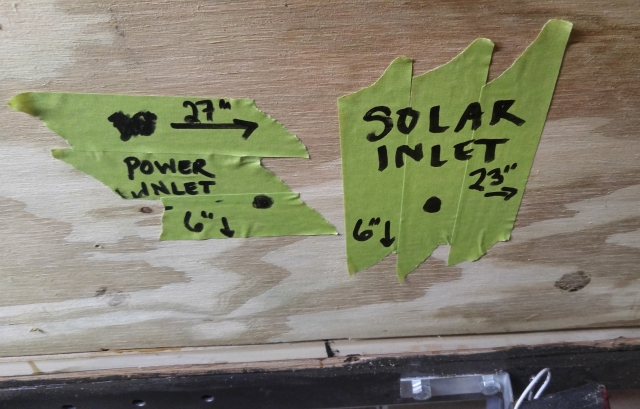 27" →
POWER
INLET
6" ↓
SOLAR
INLET
23" →
6" ↓